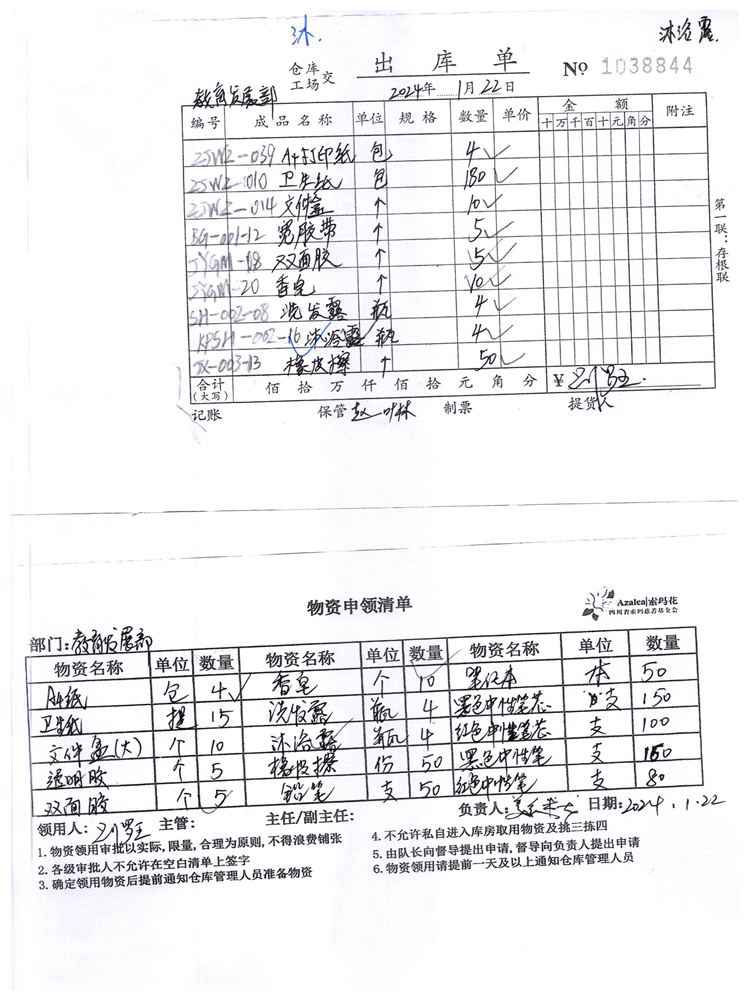 沐. 沐浴露.
仓库 工场交 出库单 No 1038844
教育发展部 2024年 1月22日
编号 成品名称 单位 规格 数量 单价 金额 附注
十万千百十元角分
ZJWZ-039 A4打印纸 包 4
ZJWZ-010 卫生纸 包 180
ZJWZ-014 文件盒 个 10
BG-001-12 宽胶带 个 5
JYGM-18 双面胶 个 5
JYGM-20 香皂 个 10
SH-002-08 洗发露 瓶 4
KPSH-002-16 沐浴露 瓶 4
JX-003-13 橡皮擦 个 50
合计(大写) 佰拾万仟佰拾元角分 ¥
记账 保管 制票 提货人
第一联：存根联
物资申领清单 Azalea|索玛花
四川省索玛慈善基金会
部门:教育发展部
物资名称 单位 数量 物资名称 单位 数量 物资名称 单位 数量
A4纸 包 4 香皂 个 10 笔记本 本 50
卫生纸 提 15 洗发露 瓶 4 黑色中性笔芯 支 150
文件盒(大) 个 10 沐浴露 瓶 4 红色中性笔芯 支 100
透明胶 个 5 橡皮擦 份 50 黑色中性笔 支 150
双面胶 个 5 铅笔 支 50 红色中性笔 支 80
领用人: 主管: 主任/副主任: 负责人: 日期:2024.1.22
1. 物资领用审批以实际, 限量, 合理为原则, 不得浪费铺张 4. 不允许私自进入库房取用物资及挑三拣四
2. 各级审批人不允许在空白清单上签字 5. 由队长向督导提出申请, 督导向负责人提出申请
3. 确定领用物资后提前通知仓库管理人员准备物资 6. 物资领用请提前一天及以上通知仓库管理人员